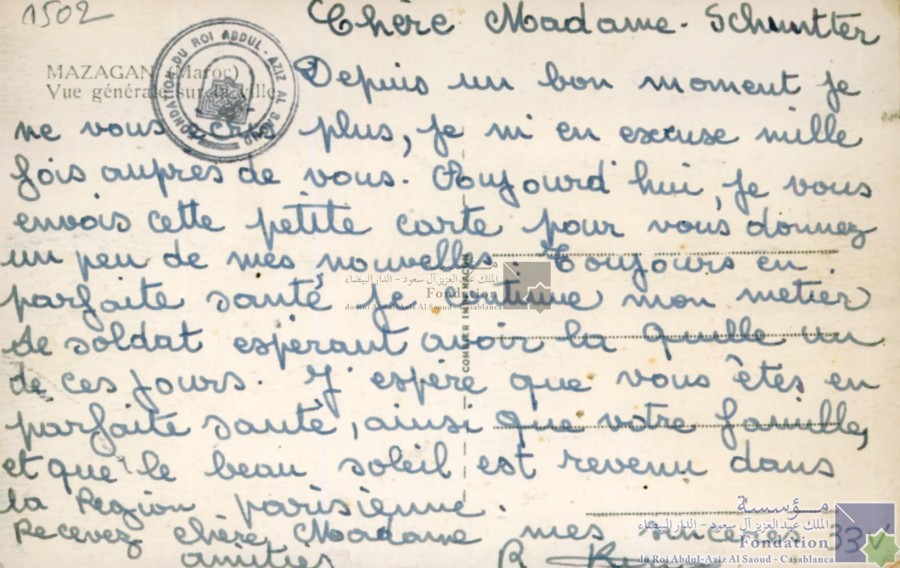 1502
Chère Madame. Schuntter
MAZAGAN (Maroc)
Vue générale sur la ville
FONDATION DU ROI ABDUL-AZIZ AL SAOUD
Depuis un bon moment je
ne vous écris plus, je m'en excuse mille
fois aupres de vous. Aujourd'hui, je vous
envois cette petite carte pour vous donnez
un peu de mes nouvelles. Toujours en
parfaite santé je continue mon metier
de soldat esperant avoir la quille un
de ces jours. J'espère que vous êtes en
parfaite santé, ainsi que votre famille,
et que le beau soleil est revenu dans
la Region parisienne.
Recevez chère Madame mes sincères
amities
R.
COMBIER IMP. MACON
الملك عبد العزيز آل سعود - الدار البيضاء
Fondation
du Roi Abdul-Aziz Al Saoud - Casablanca
33
مؤسسة
الملك عبد العزيز آل سعود - الدار البيضاء
Fondation
du Roi Abdul-Aziz Al Saoud - Casablanca